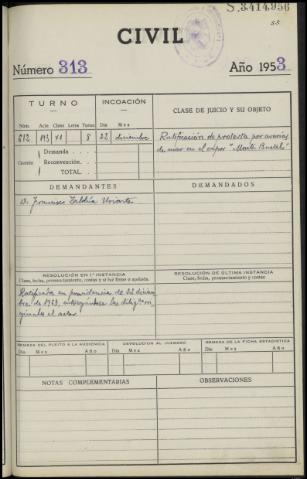 S.3414956
CIVIL
Número 313 Año 1953
TURNO INCOACIÓN CLASE DE JUICIO Y SU OBJETO
Núm. Acto Clase Letra Turno Día Mes
612 11 8 22 diciembre Ratificación de protesta por averías
de mar en el vapor "Monte
Cuantía Demanda
Reconvención
TOTAL
DEMANDANTES DEMANDADOS
D. Francisco Zaldúa Uriarte
RESOLUCIÓN EN 1.ª INSTANCIA RESOLUCIÓN DE ÚLTIMA INSTANCIA
Clase, fecha, pronunciamiento, costas y si fué firme o apelada. Clase, fecha, pronunciamiento y costas
Ratificada en providencia de 22 diciem
bre de 1953, entregándose las diligen
al actor
REMESA DEL PLEITO A LA AUDIENCIA DEVOLUCIÓN AL JUZGADO REMESA DE LA FICHA ESTADÍSTICA
Día Mes Año Día Mes Año Día Mes Año
NOTAS COMPLEMENTARIAS OBSERVACIONES